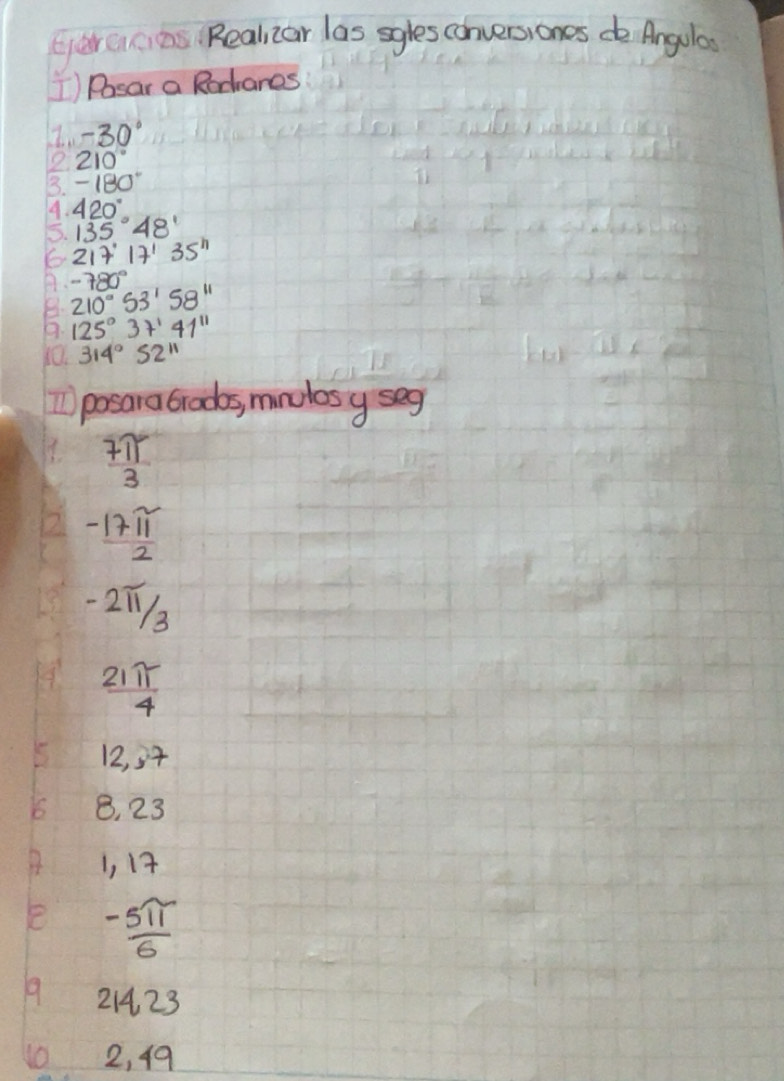 Ejercicios: Realizar las sgtes conversiones de Angulos
I) Pasar a Radianes:
1. -30°
2. 210°
3. -180°
4. 420°
5. 135° 48'
6. 217° 17' 35"
7. -780°
8. 210° 53' 58"
9. 125° 37' 41"
10. 314° 52"
II) pasar a Grados, minutos y seg
1. 7π/3
2 -17π/2
3 -2π/3
4 21π/4
5
6 8,23
7 1,17
8 -5π/6
9 214,23
10 2,49